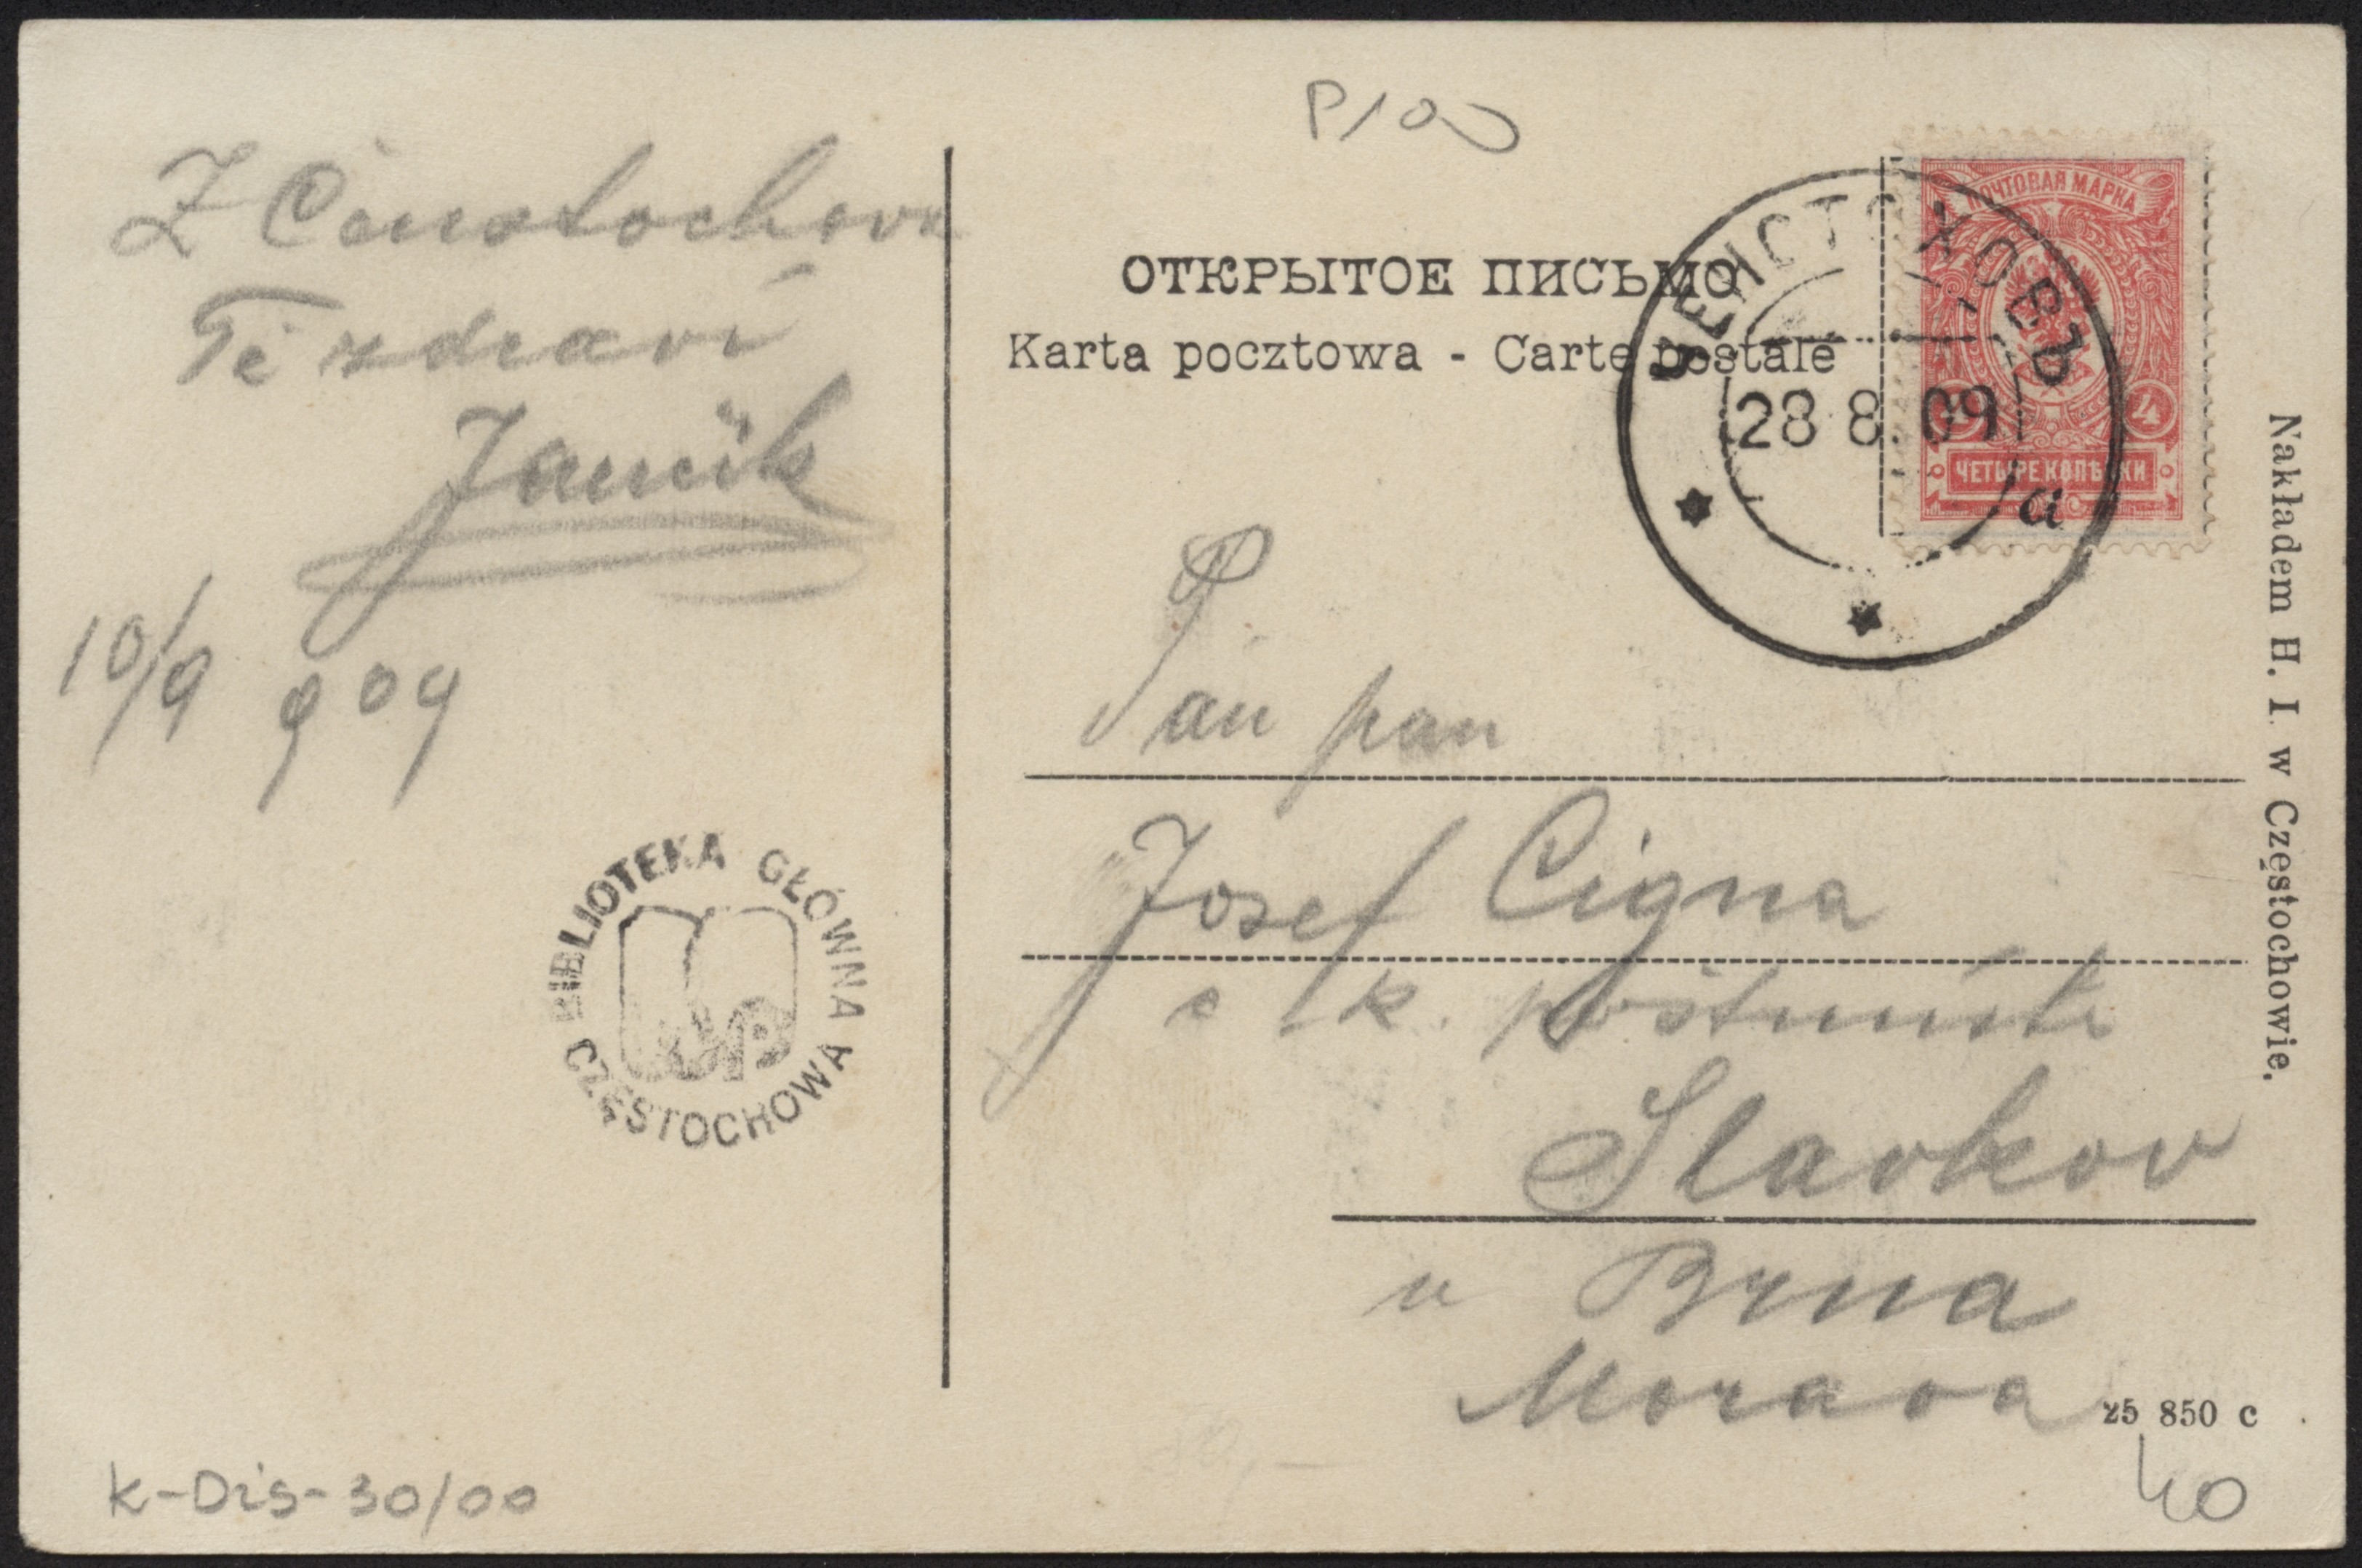 Z Čenstochova
Tě zdraví
Jančík
10/9 909
P/00
ОТКРЫТОЕ ПИСЬМО
Karta pocztowa - Carte postale
ПОЧТОВАЯ МАРКА
4
ЧЕТЫРЕ КОПѢЙКИ
ЧЕНСТОХОВЪ
28 8. 09
a
Pán pan
Josef Cigna
c. k. poštmistr
Slavkov
u Brna
Morava
Nakładem H. I. w Częstochowie.
25 850 c
40
BIBLIOTEKA GŁÓWNA
WSP
CZĘSTOCHOWA
K-Dis-30/00